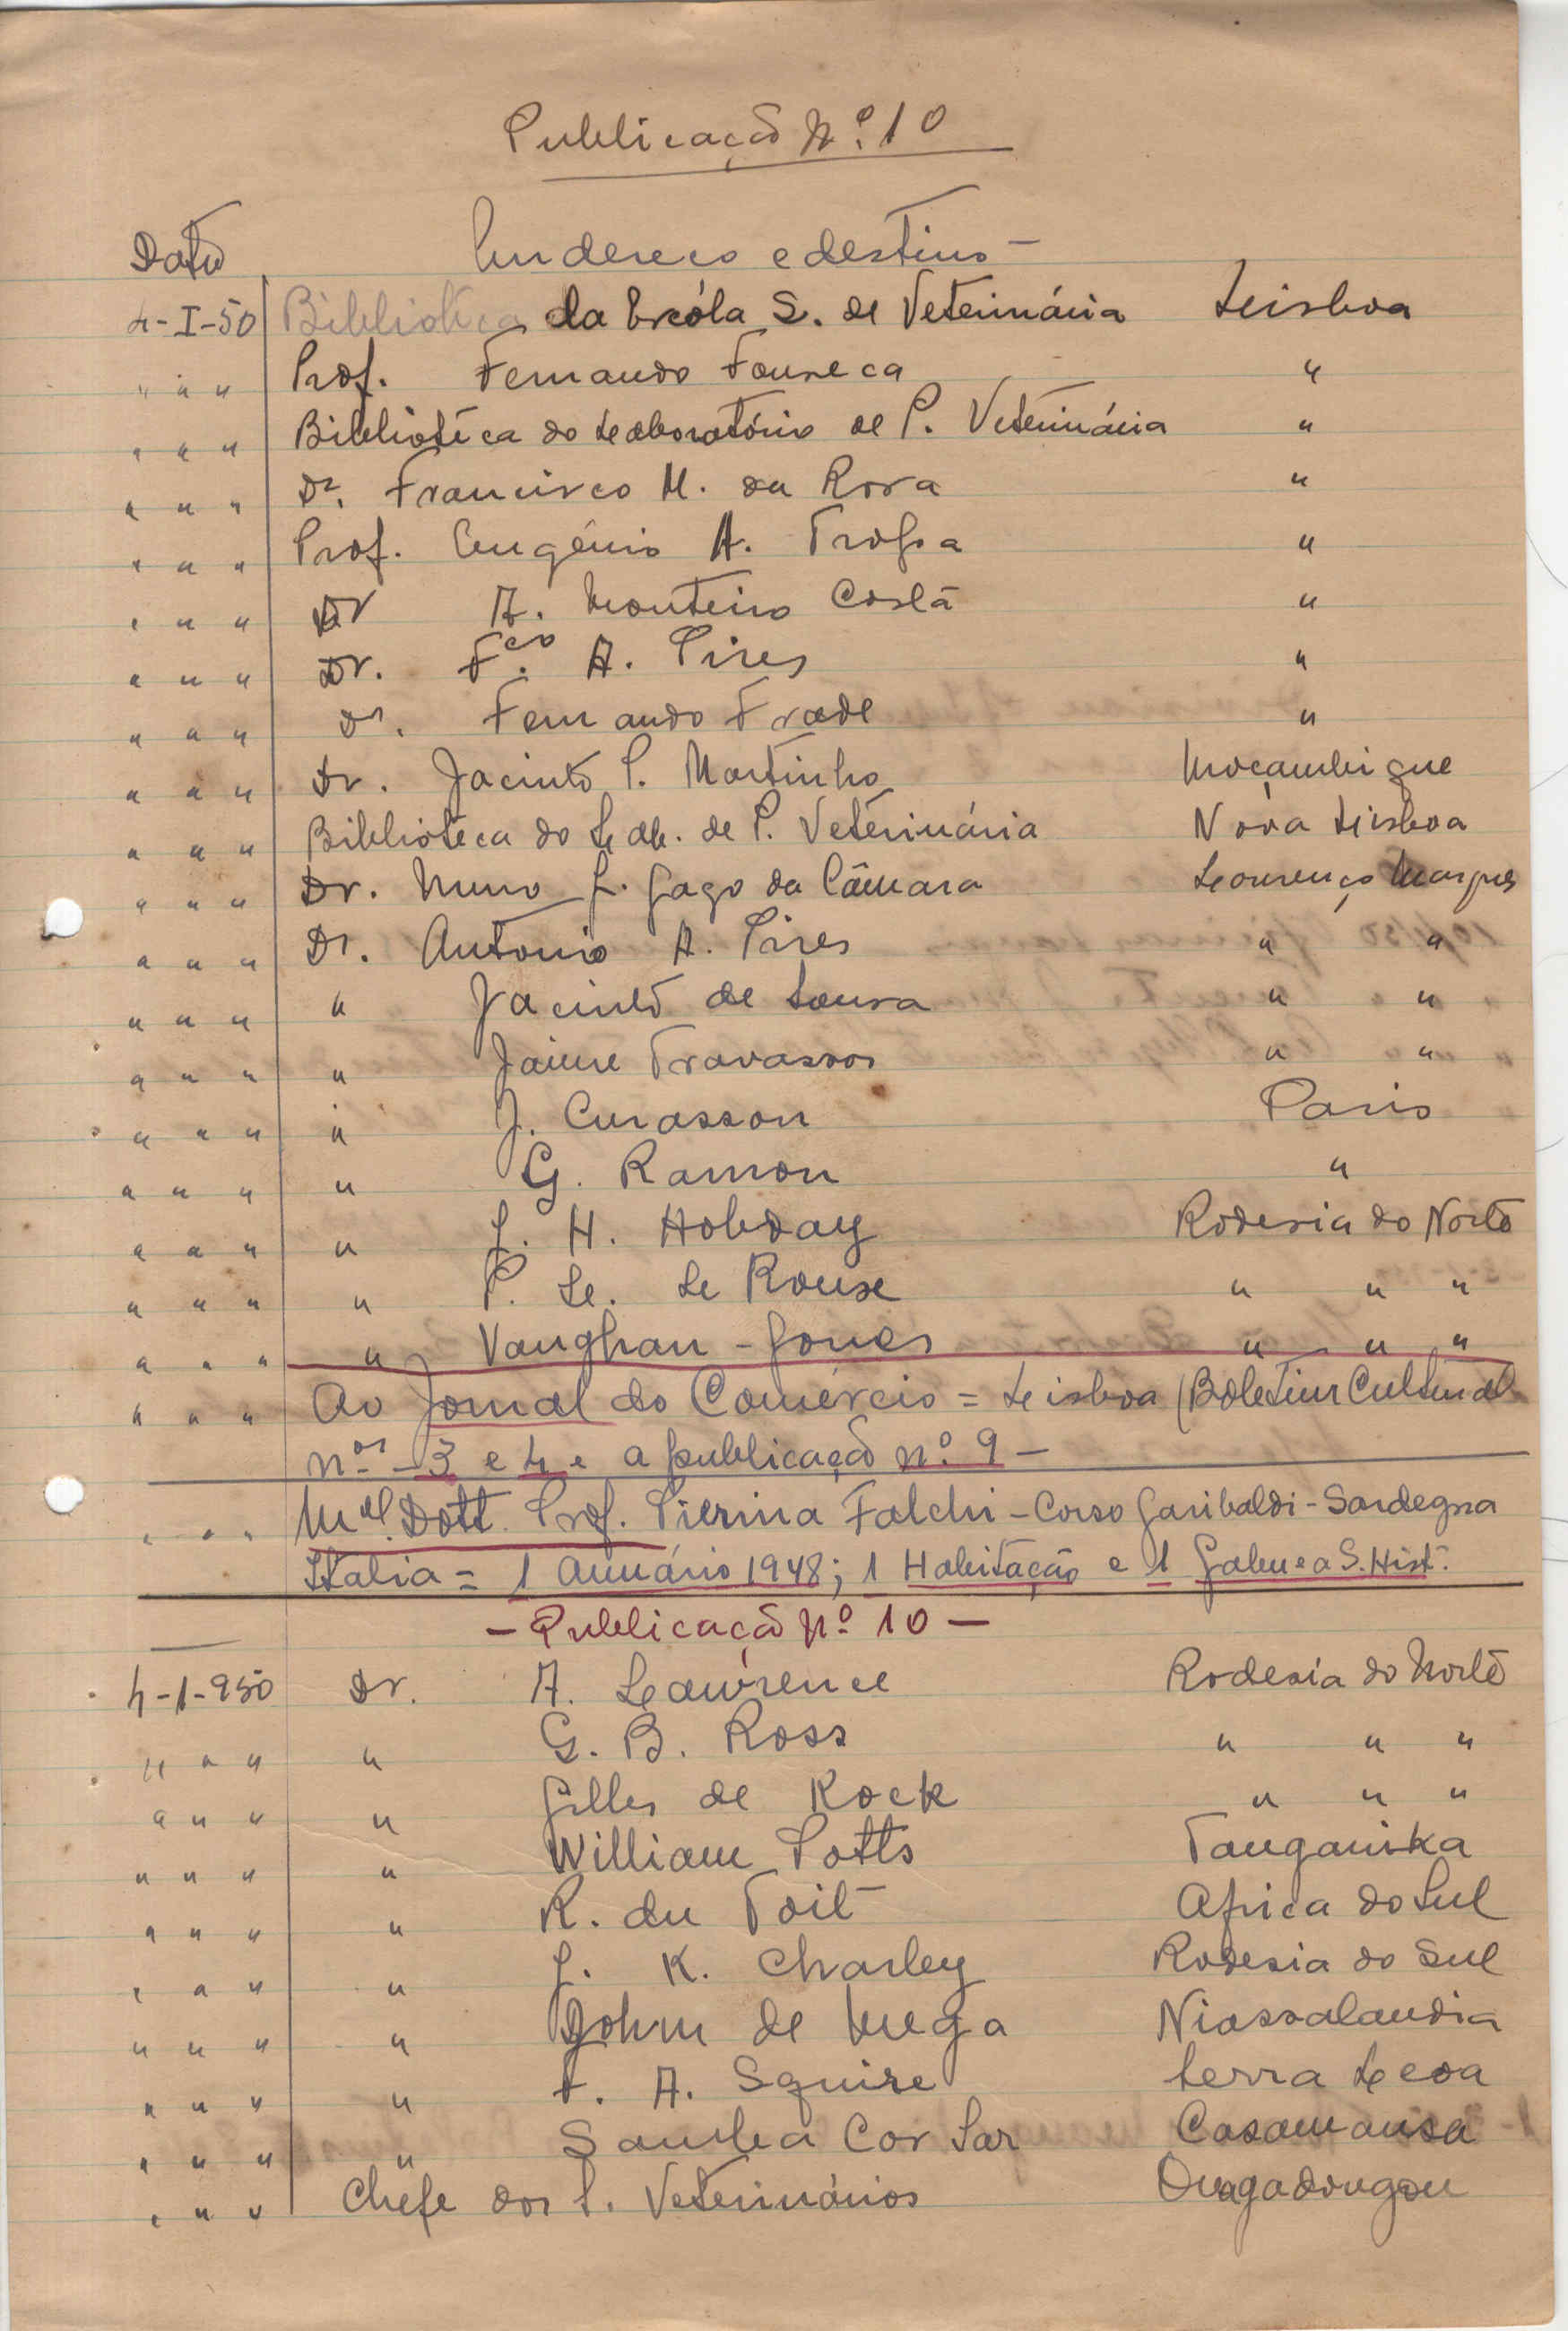 Publicação Nº. 10
Data Endereço e destino –
4-I-50 Biblioteca da Escóla S. de Veterinária Lisboa
" " " Prof. Fernando Fonseca "
" " " Bibliotéca do Laboratório de P. Veterinária "
" " " Dr. Francisco M. da Rosa "
" " " Prof. Eugénio A. Tropa "
" " " Dr A. Monteiro Costa "
" " " Dr. Fco. A. Pires "
" " " Dr. Fernando Frade "
" " " Dr. Jacinto P. Martinho Moçambique
" " " Bibliotéca do Lab. de P. Veterinária Nova Lisboa
" " " Dr. Nuno J. Gago da Câmara Lourenço Marques
" " " Dr. António A. Pires " "
" " " " Jacinto de Sousa " "
" " " " Jaime Travassos " "
" " " " J. Curasson Paris
" " " " G. Ramon "
" " " " J. H. Hobday Rodesia do Norte
" " " " P. L. Le Roux " " "
" " " " Vaughan - Jones " " "
" " " Ao Jornal do Comércio = Lisboa (Boletim Cultural
nos. 3 e 4 e a publicação nº. 9 –
" " " Dott. Prof. Pierina Falchi – Corso Garibaldi – Sardegna
Italia = 1 Anuário 1948; 1 Habitação e 1 S. Hist.
– Publicação Nº 10 –
4-1-950 Dr. A. Lawrence Rodesia do Norte
" " " " G. B. Ross " " "
" " " " Gilles de Kock " " "
" " " " William Potts Tanganika
" " " " R. du Toit Africa do Sul
" " " " J. K. Charley Rodesia do Sul
" " " " John de Mega Niassalandia
" " " " F. A. Squire Serra Leoa
" " " " Samba Cor Sar Casamansa
" " " Chefe dos S. Veterinários Ouagadougou